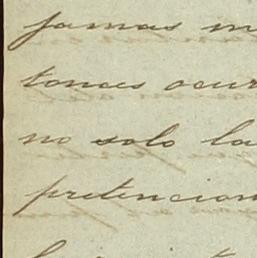 jamas m
tonces ocur
no solo la
pretencion